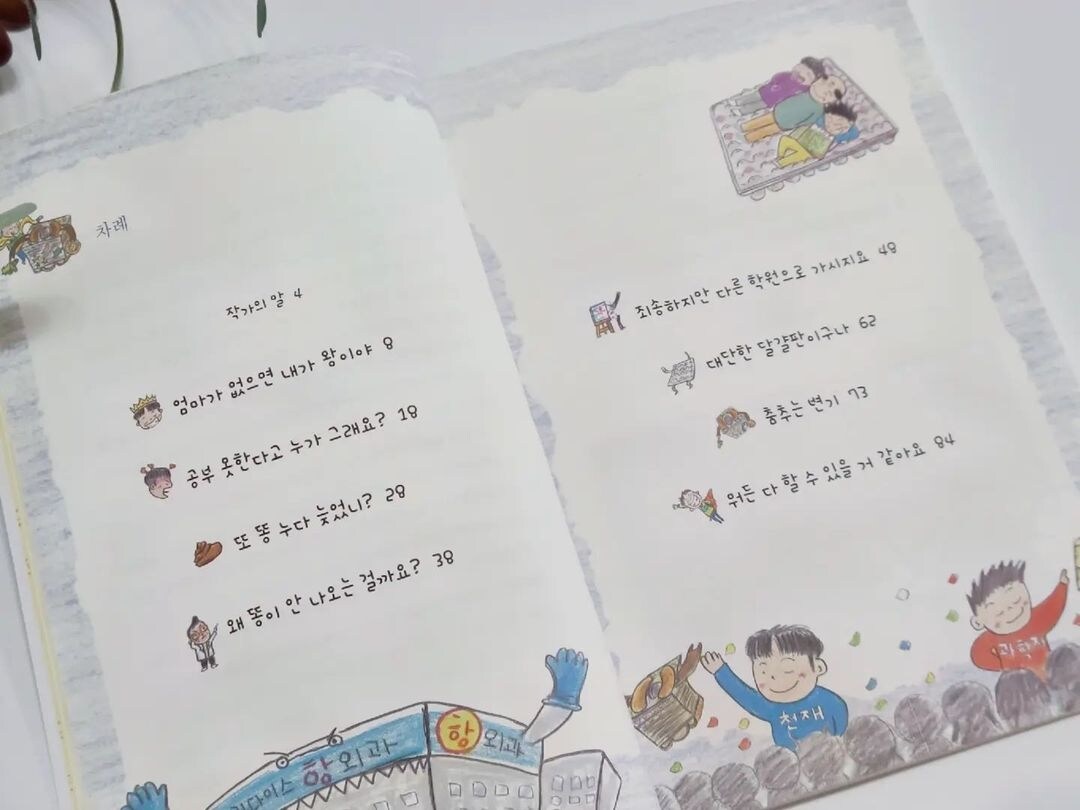 차례
작가의 말 4
엄마가 없으면 내가 왕이야 8
공부 못한다고 누가 그래요? 18
또 똥 누다 늦었니? 28
왜 똥이 안 나오는 걸까요? 38
항외과
항 외과
죄송하지만 다른 학원으로 가시지요 48
대단한 달걀판이구나 62
춤추는 변기 73
뭐든 다 할 수 있을 거 같아요 84
천재
과학자